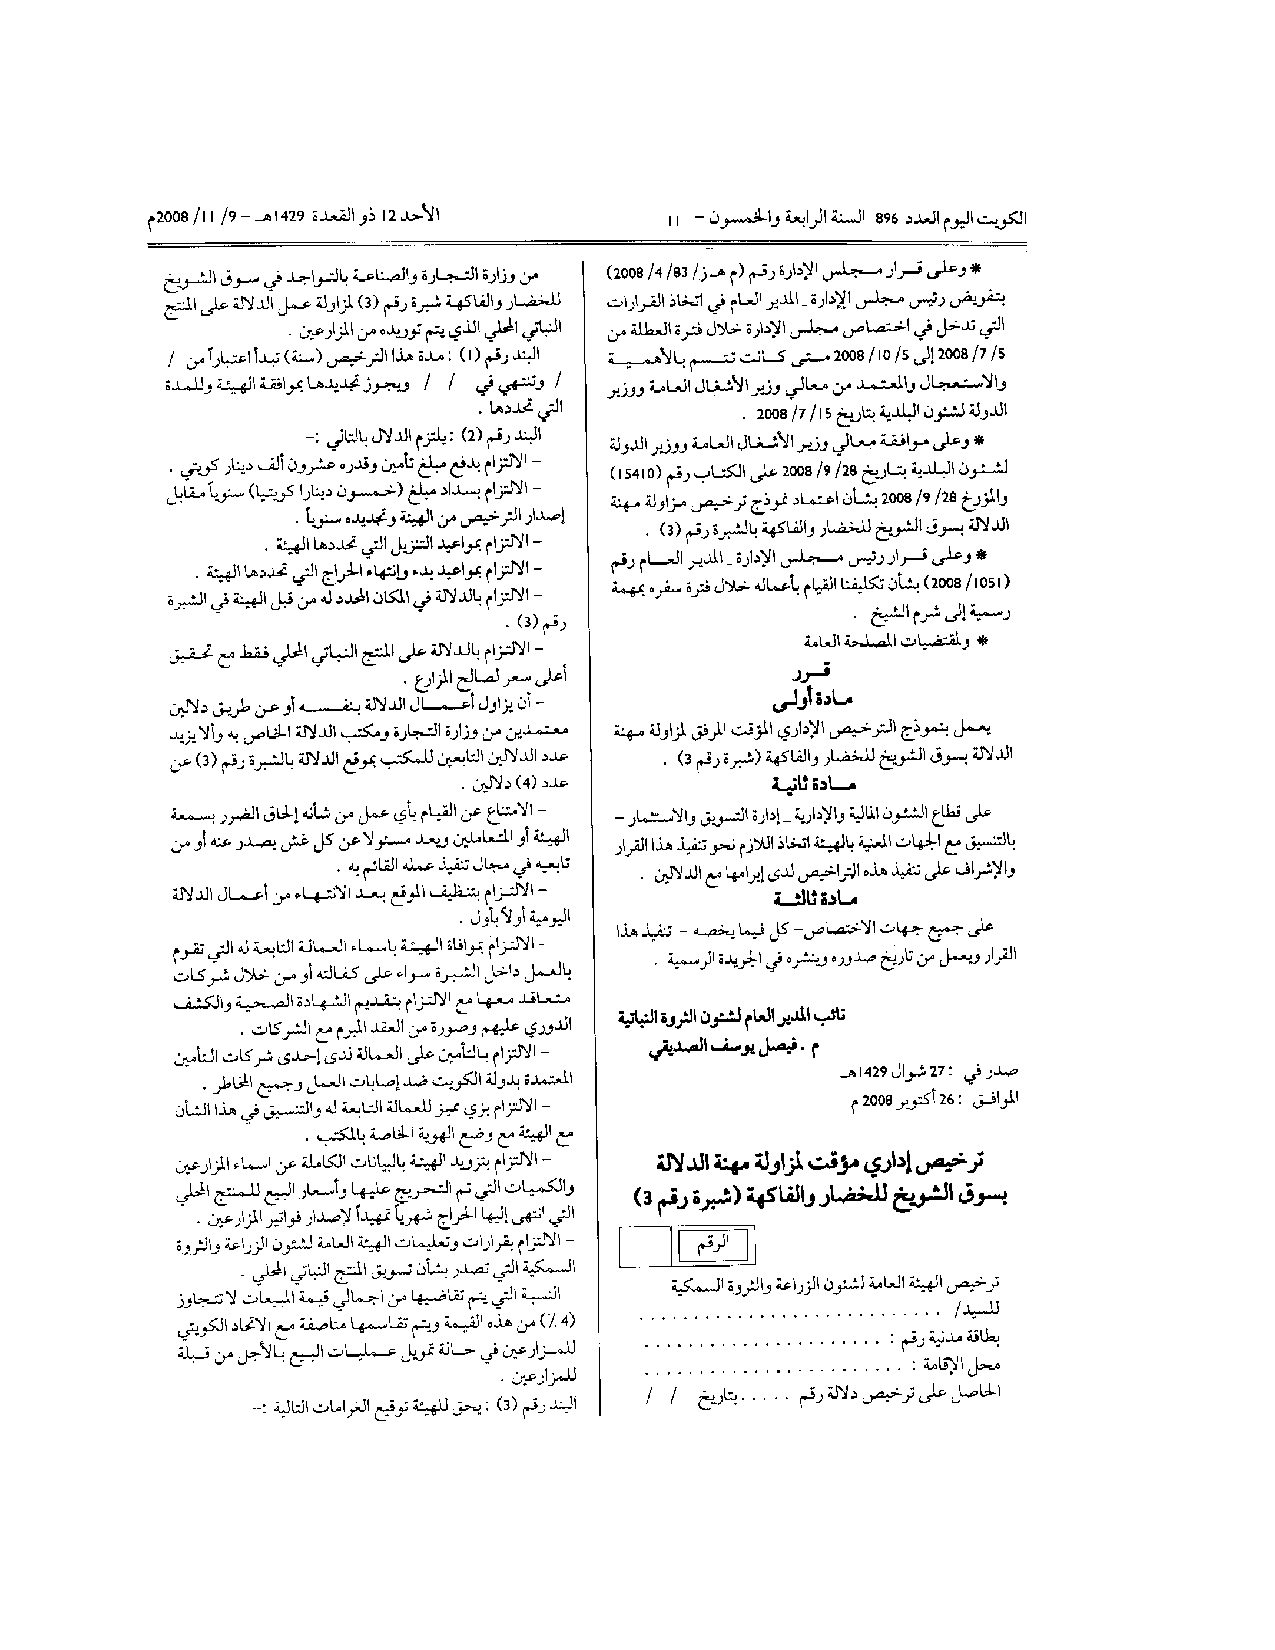 الكويت اليوم العدد 896 السنة الرابعة والخمسون – 11
الأحد 12 ذو القعدة 1429هـ – 9/ 11/ 2008م
* وعلى قـرار مـجلس الإدارة رقم (م هـ ز/ 83/ 4/ 2008)
بتفويض رئيس مجلس الإدارة ـ المدير العام في اتخاذ القرارات
التي تدخل في اختصاص مجلس الإدارة خلال فترة العطلة من
5/ 7/ 2008 إلى 5/ 10/ 2008 متى كانت تتسم بالأهمية
والاستعجال والمعتمد من معالي وزير الأشغال العامة ووزير
الدولة لشئون البلدية بتاريخ 15/ 7/ 2008 .
* وعلى موافقة معالي وزير الأشغال العامة ووزير الدولة
لشئون البلدية بتاريخ 28/ 9/ 2008 على الكتاب رقم (15410)
والمؤرخ 28/ 9/ 2008 بشأن اعتماد نموذج ترخيص مزاولة مهنة
الدلالة بسوق الشويخ للخضار والفاكهة بالشبرة رقم (3) .
* وعلى قـرار رئيس مـجلس الإدارة ـ المدير العـام رقم
(1051/ 2008) بشأن تكليفنا القيام بأعماله خلال فترة سفره بمهمة
رسمية إلى شرم الشيخ .
* ولمقتضيات المصلحة العامة
قـرر
مـادة أولـى
يعمل بنموذج الترخيص الإداري المؤقت المرفق لمزاولة مهنة
الدلالة بسوق الشويخ للخضار والفاكهة (شبرة رقم 3) .
مـادة ثانيـة
على قطاع الشئون المالية والإدارية ـ إدارة التسويق والاستثمار –
بالتنسيق مع الجهات المعنية بالهيئة اتخاذ اللازم نحو تنفيذ هذا القرار
والإشراف على تنفيذ هذه التراخيص لدى إبرامها مع الدلالين .
مـادة ثالثـة
على جميع جهات الاختصاص– كل فيما يخصه – تنفيذ هذا
القرار ويعمل من تاريخ صدوره وينشره في الجريدة الرسمية .
نائب المدير العام لشئون الثروة النباتية
م . فيصل يوسف الصديقي
صدر في : 27 شوال 1429هـ
الموافـق : 26 أكتوبر 2008 م
ترخيص إداري مؤقت لمزاولة مهنة الدلالة
بسوق الشويخ للخضار والفاكهة (شبرة رقم 3)
الرقم
ترخيص الهيئة العامة لشئون الزراعة والثروة السمكية
للسيد/ ................................
بطاقة مدنية رقم : ......................
محل الإقامة : ........................
الحاصل على ترخيص دلالة رقم ..... بتاريخ / /
من وزارة التجارة والصناعة بالتواجد في سوق الشويخ
للخضار والفاكهة شبرة رقم (3) لمزاولة عمل الدلالة على المنتج
النباتي المحلي الذي يتم توريده من المزارعين .
البند رقم (1) : مدة هذا الترخيص (سنة) تبدأ اعتباراً من /
/ وتنتهي في / / ويجوز تجديدها بموافقة الهيئة وللمدة
التي تحددها .
البند رقم (2) : يلتزم الدلال بالتالي :–
– الالتزام بدفع مبلغ تأمين وقدره عشرون ألف دينار كويتي .
– الالتزام بسداد مبلغ (خمسون دينارا كويتيا) سنوياً مقابل
إصدار الترخيص من الهيئة وتجديده سنوياً .
– الالتزام بمواعيد التنزيل التي تحددها الهيئة .
– الالتزام بمواعيد بدء وإنتهاء الحراج التي تحددها الهيئة .
– الالتزام بالدلالة في المكان المحدد له من قبل الهيئة في الشبرة
رقم (3) .
– الالتزام بالدلالة على المنتج النباتي المحلي فقط مع تحقيق
أعلى سعر لصالح المزارع .
– أن يزاول أعـمـال الدلالة بنفـسـه أو عن طريق دلالين
معتمدين من وزارة التجارة ومكتب الدلالة الخاص به وألا يزيد
عدد الدلالين التابعين للمكتب بموقع الدلالة بالشبرة رقم (3) عن
عدد (4) دلالين .
– الامتناع عن القيام بأي عمل من شأنه إلحاق الضرر بسمعة
الهيئة أو المتعاملين ويعد مسئولا عن كل غش يصدر عنه أو من
تابعيه في مجال تنفيذ عمله القائم به .
– الالتزام بتنظيف الموقع بعد الانتهاء من أعمال الدلالة
اليومية أولاً بأول .
– الالتزام بموافاة الهيئة باسماء العمالة التابعة له التي تقوم
بالعمل داخل الشبرة سواء على كفالته أو من خلال شركات
متعاقد معها مع الالتزام بتقديم الشهادة الصحية والكشف
الدوري عليهم وصورة من العقد المبرم مع الشركات .
– الالتزام بالتأمين على العمالة لدى إحدى شركات التأمين
المعتمدة بدولة الكويت ضد إصابات العمل وجميع المخاطر .
– الالتزام بزي مميز للعمالة التابعة له والتنسيق في هذا الشأن
مع الهيئة مع وضع الهوية الخاصة بالمكتب .
– الالتزام بتزويد الهيئة بالبيانات الكاملة عن اسماء المزارعين
والكميات التي تم التحريج عليها وأسعار البيع للمنتج المحلي
التي انتهى إليها الحراج شهرياً تمهيداً لإصدار فواتير المزارعين .
– الالتزام بقرارات وتعليمات الهيئة العامة لشئون الزراعة والثروة
السمكية التي تصدر بشأن تسويق المنتج النباتي المحلي .
النسبة التي يتم تقاضيها من اجمالي قيمة المبيعات لا تتجاوز
(4٪) من هذه القيمة ويتم تقاسمها مناصفة مع الاتحاد الكويتي
للمزارعين في حالة تمويل عمليات البيع بالأجل من قبله
للمزارعين .
البند رقم (3) : يحق للهيئة توقيع الغرامات التالية :–